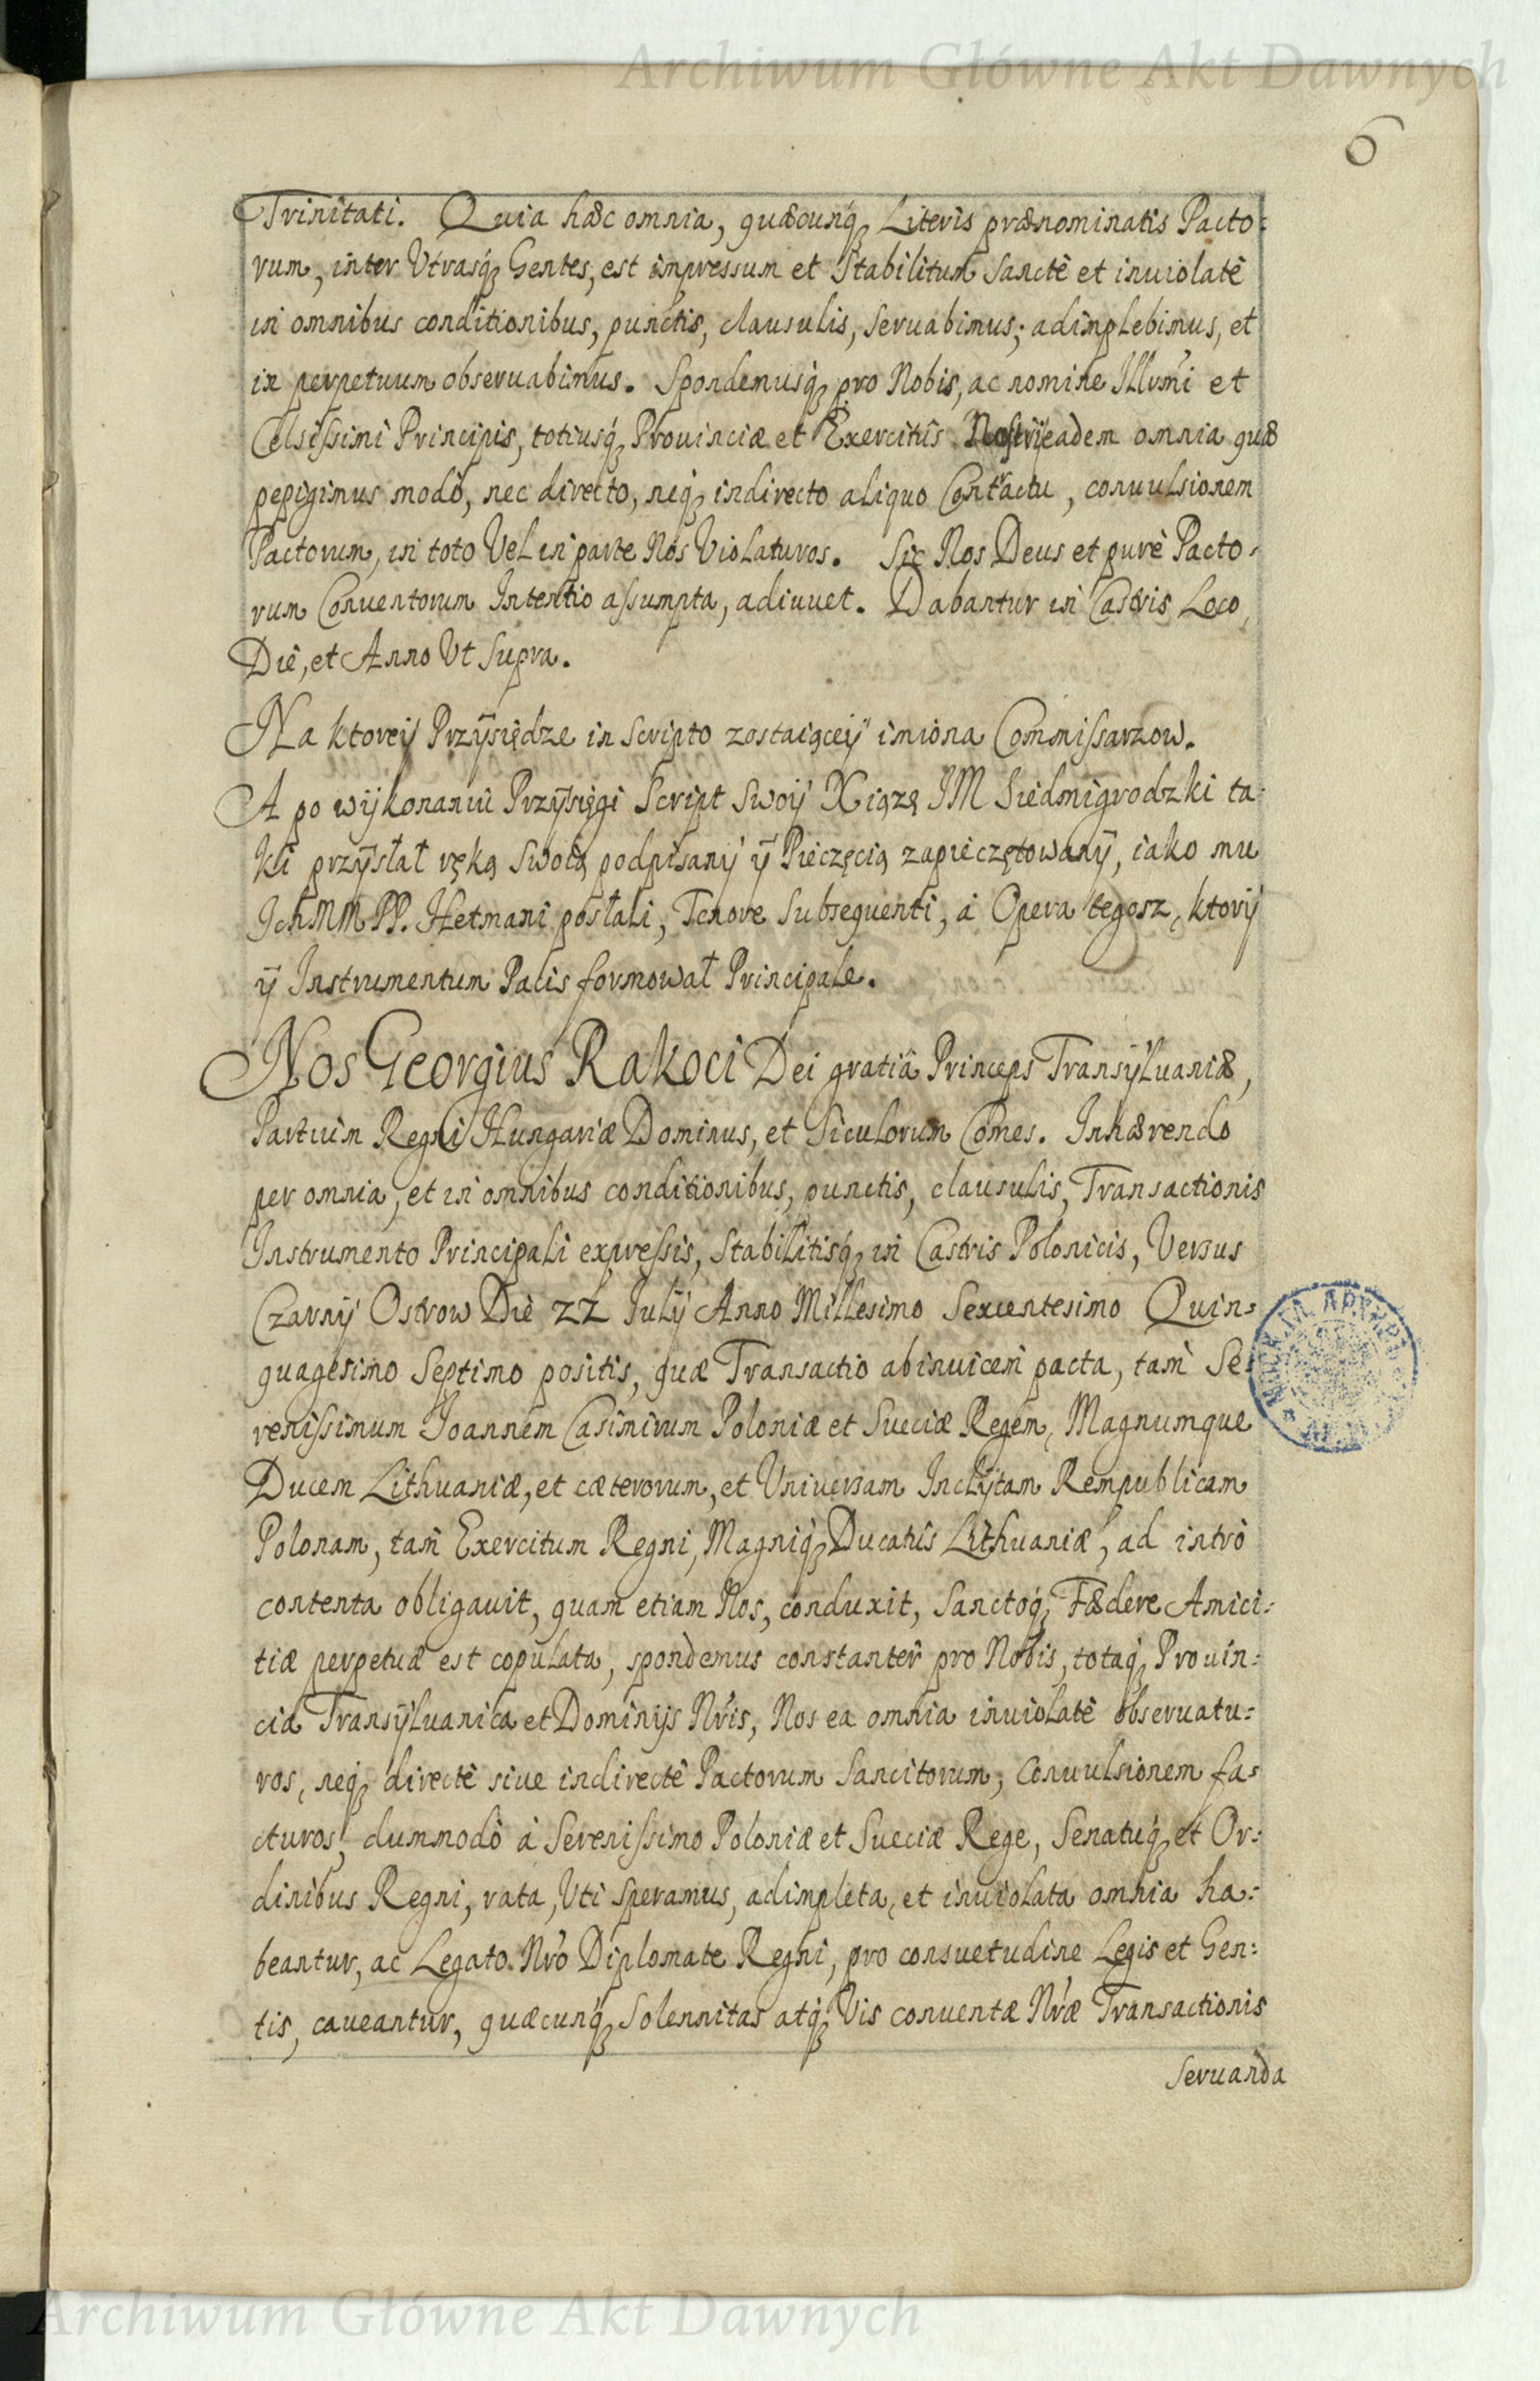 Archiwum Główne Akt Dawnych
6
Trinitati. Quia hæc omnia, quæcunq; Literis prænominatis Pacto:
rum, inter Utrasq; Gentes, est impressum et stabilitum sanctè et inuiolatè
in omnibus conditionibus, punctis, clausulis, seruabimus; adimplebimus, et
in perpetuum obseruabimus. Spondemusq; pro Nobis, ac nomine Illrm̃i et
Celsissimi Principis, totiusq; Prouinciæ et Exercitûs Nostri, eadem omnia quæ
pepigimus modò, nec directo, neq; indirecto aliquo Contractu, conuulsionem
Pactorum, in toto Vel in parte Nos Violaturos. Sic Nos Deus et purè Pacto:
rum Conuentorum Intentio assumpta, adiuuet. Dabantur in Castris Loco,
Diê, et Anno Ut Supra.
Na ktoreÿ Przÿsiędze in Scripto zostaiąceÿ imiona Commissarzow.
A po wÿkonaniu Przÿsięgi Script Swoÿ Xiązę JM Siedmigrodzki ta:
ki przÿsłał ręką Swoią podpisanÿ ÿ Pieczęcią zapieczętowanÿ, iako mu
Ich MM PP. Hetmani posłali, Tenore Subsequenti, á Opera tegosz, ktorÿ
ÿ Instrumentum Pacis formował Principale.
Nos Georgius Rakoci Dei gratiâ Princeps Transÿluaniæ,
Partium Regni Hungariæ Dominus, et Siculorum Comes. Inhærendo
per omnia, et in omnibus conditionibus, punctis, clausulis, Transactionis
Instrumento Principali expressis, Stabilitisq; in Castris Polonicis, Versus
Czarnÿ Ostrow Diê 22 Julÿ Anno Millesimo Sexcentesimo Quin:
quagesimo Septimo positis, quæ Transactio abinuicem pacta, tam Se:
renissimum Joannem Casimirum Poloniæ et Sueciæ Regem, Magnumque
Ducem Lithuaniæ, et cæterorum, et Uniuersam Inclÿtam Rempublicam
Polonam, tam Exercitum Regni, Magniq; Ducatûs Lithuaniæ, ad intrò
contenta obligauit, quam etiam Nos, conduxit, Sanctoq; Fædere Amici:
tiæ perpetuæ est copulata, spondemus constanter pro Nobis, totaq; Prouin:
cia Transÿluanica et Dominÿs Nr̃is, Nos ea omnia inuiolatè obseruatu:
ros, neq; directè siue indirectè Pactorum Sancitorum, Conuulsionem fa:
cturos, dummodò à Serenissimo Poloniæ et Sueciæ Rege, Senatuq; et Or:
dinibus Regni, rata, Uti speramus, adimpleta, et inuiolata omnia ha:
beantur, ac Legato Nr̃o Diplomate Regni, pro consuetudine Legis et Gen:
tis, caueantur, quæcunq; Solennitas atq; Vis conuentæ Nr̃æ Transactionis
Seruanda
Archiwum Główne Akt Dawnych